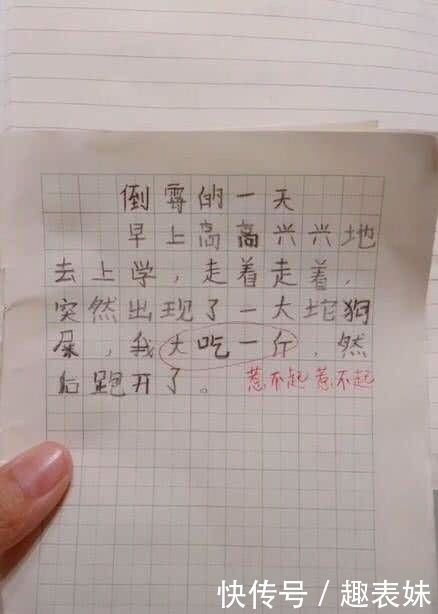 倒霉的一天
早上高高兴兴地
去上学，走着走着，
突然出现了一大坨狗
屎，我大吃一斤，然
后跑开了。 惹不起惹不起
快传号／趣表妹